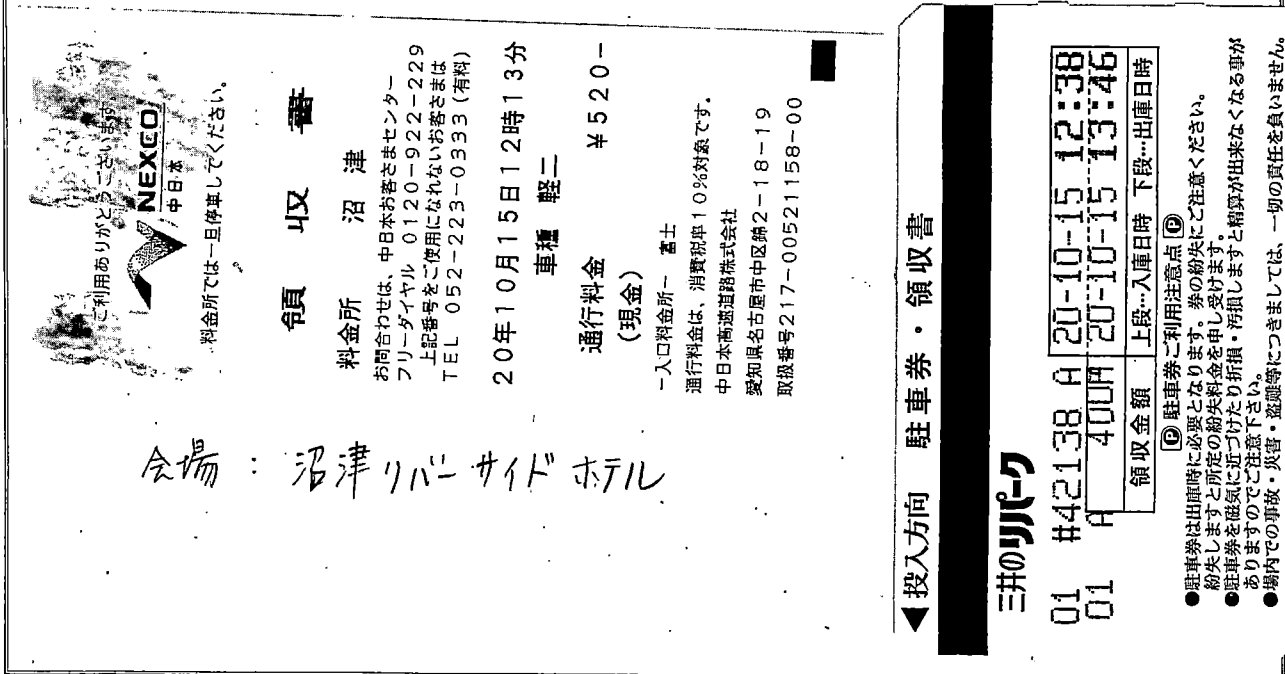 ご利用ありがとうございます
NEXCO
中日本
料金所では一旦停車してください。
領収書
料金所 沼津
お問合わせは、中日本お客さまセンター
フリーダイヤル 0120-922-229
上記番号をご使用になれないお客さまは
TEL 052-223-0333(有料)
20年10月15日12時13分
車種 軽二
通行料金 ¥520-
(現金)
-入口料金所- 富士
通行料金は、消費税率10%対象です。
中日本高速道路株式会社
愛知県名古屋市中区錦2-18-19
取扱番号217-00521158-00
会場 : 沼津リバーサイドホテル
◀投入方向 駐車券・領収書
三井のリパーク
01 #42138 A 20-10-15 12:38
01 A 400A 20-10-15 13:46
領収金額 上段…入庫日時 下段…出庫日時
Ⓟ駐車券ご利用注意点Ⓟ
●駐車券は出庫時に必要となります。券の紛失にご注意ください。
紛失しますと所定の紛失料金を申し受けます。
●駐車券を磁気に近づけたり折損・汚損しますと精算が出来なくなる事が
ありますのでご注意下さい。
●場内での事故・災害・盗難等につきましては、一切の責任を負いません。